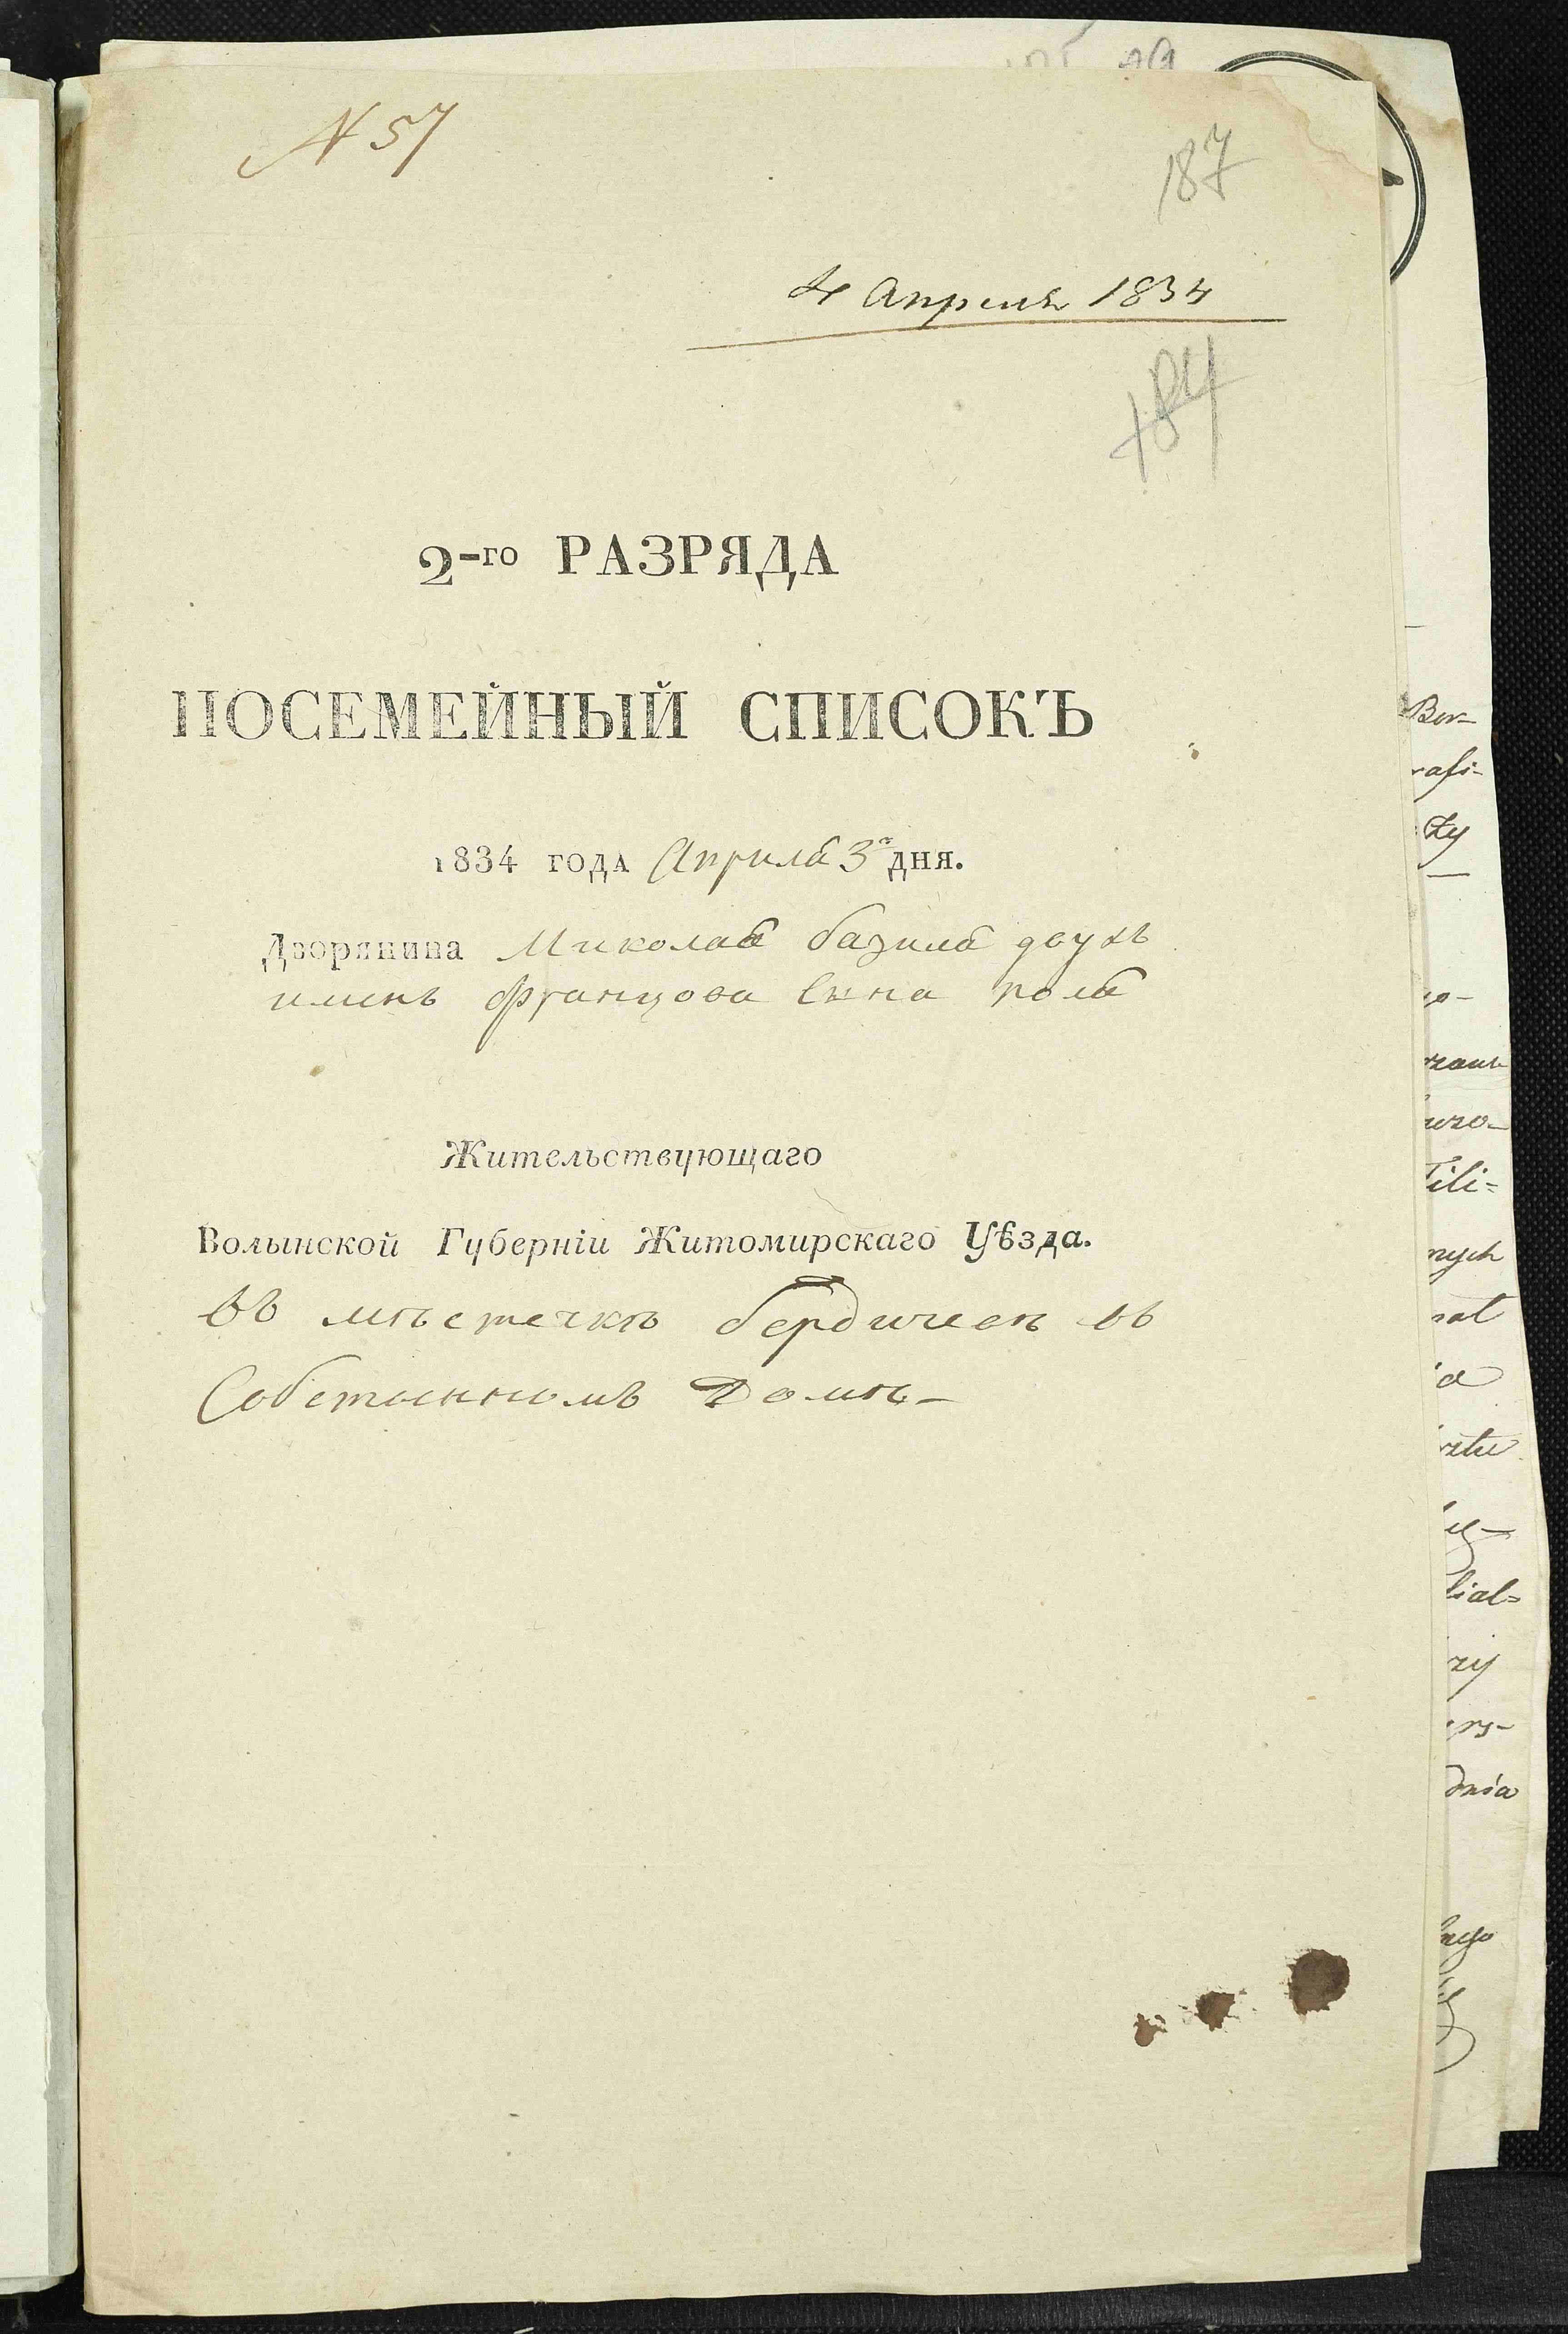 N 57
187
4 Апреля 1834
184
2-го РАЗРЯДА
ПОСЕМЕЙНЫЙ СПИСОКЪ
1834 года Апреля 3го дня.
Дворянина Миколая базиля двухъ
именъ францова Сына
Жительствующаго
Волынской Губерніи Житомирскаго Уѣзда.
въ мѣстечкѣ бердичевѣ въ
Собственномъ Домѣ-
Bor-
rafi-
czo-
Tili-
nych
dnia